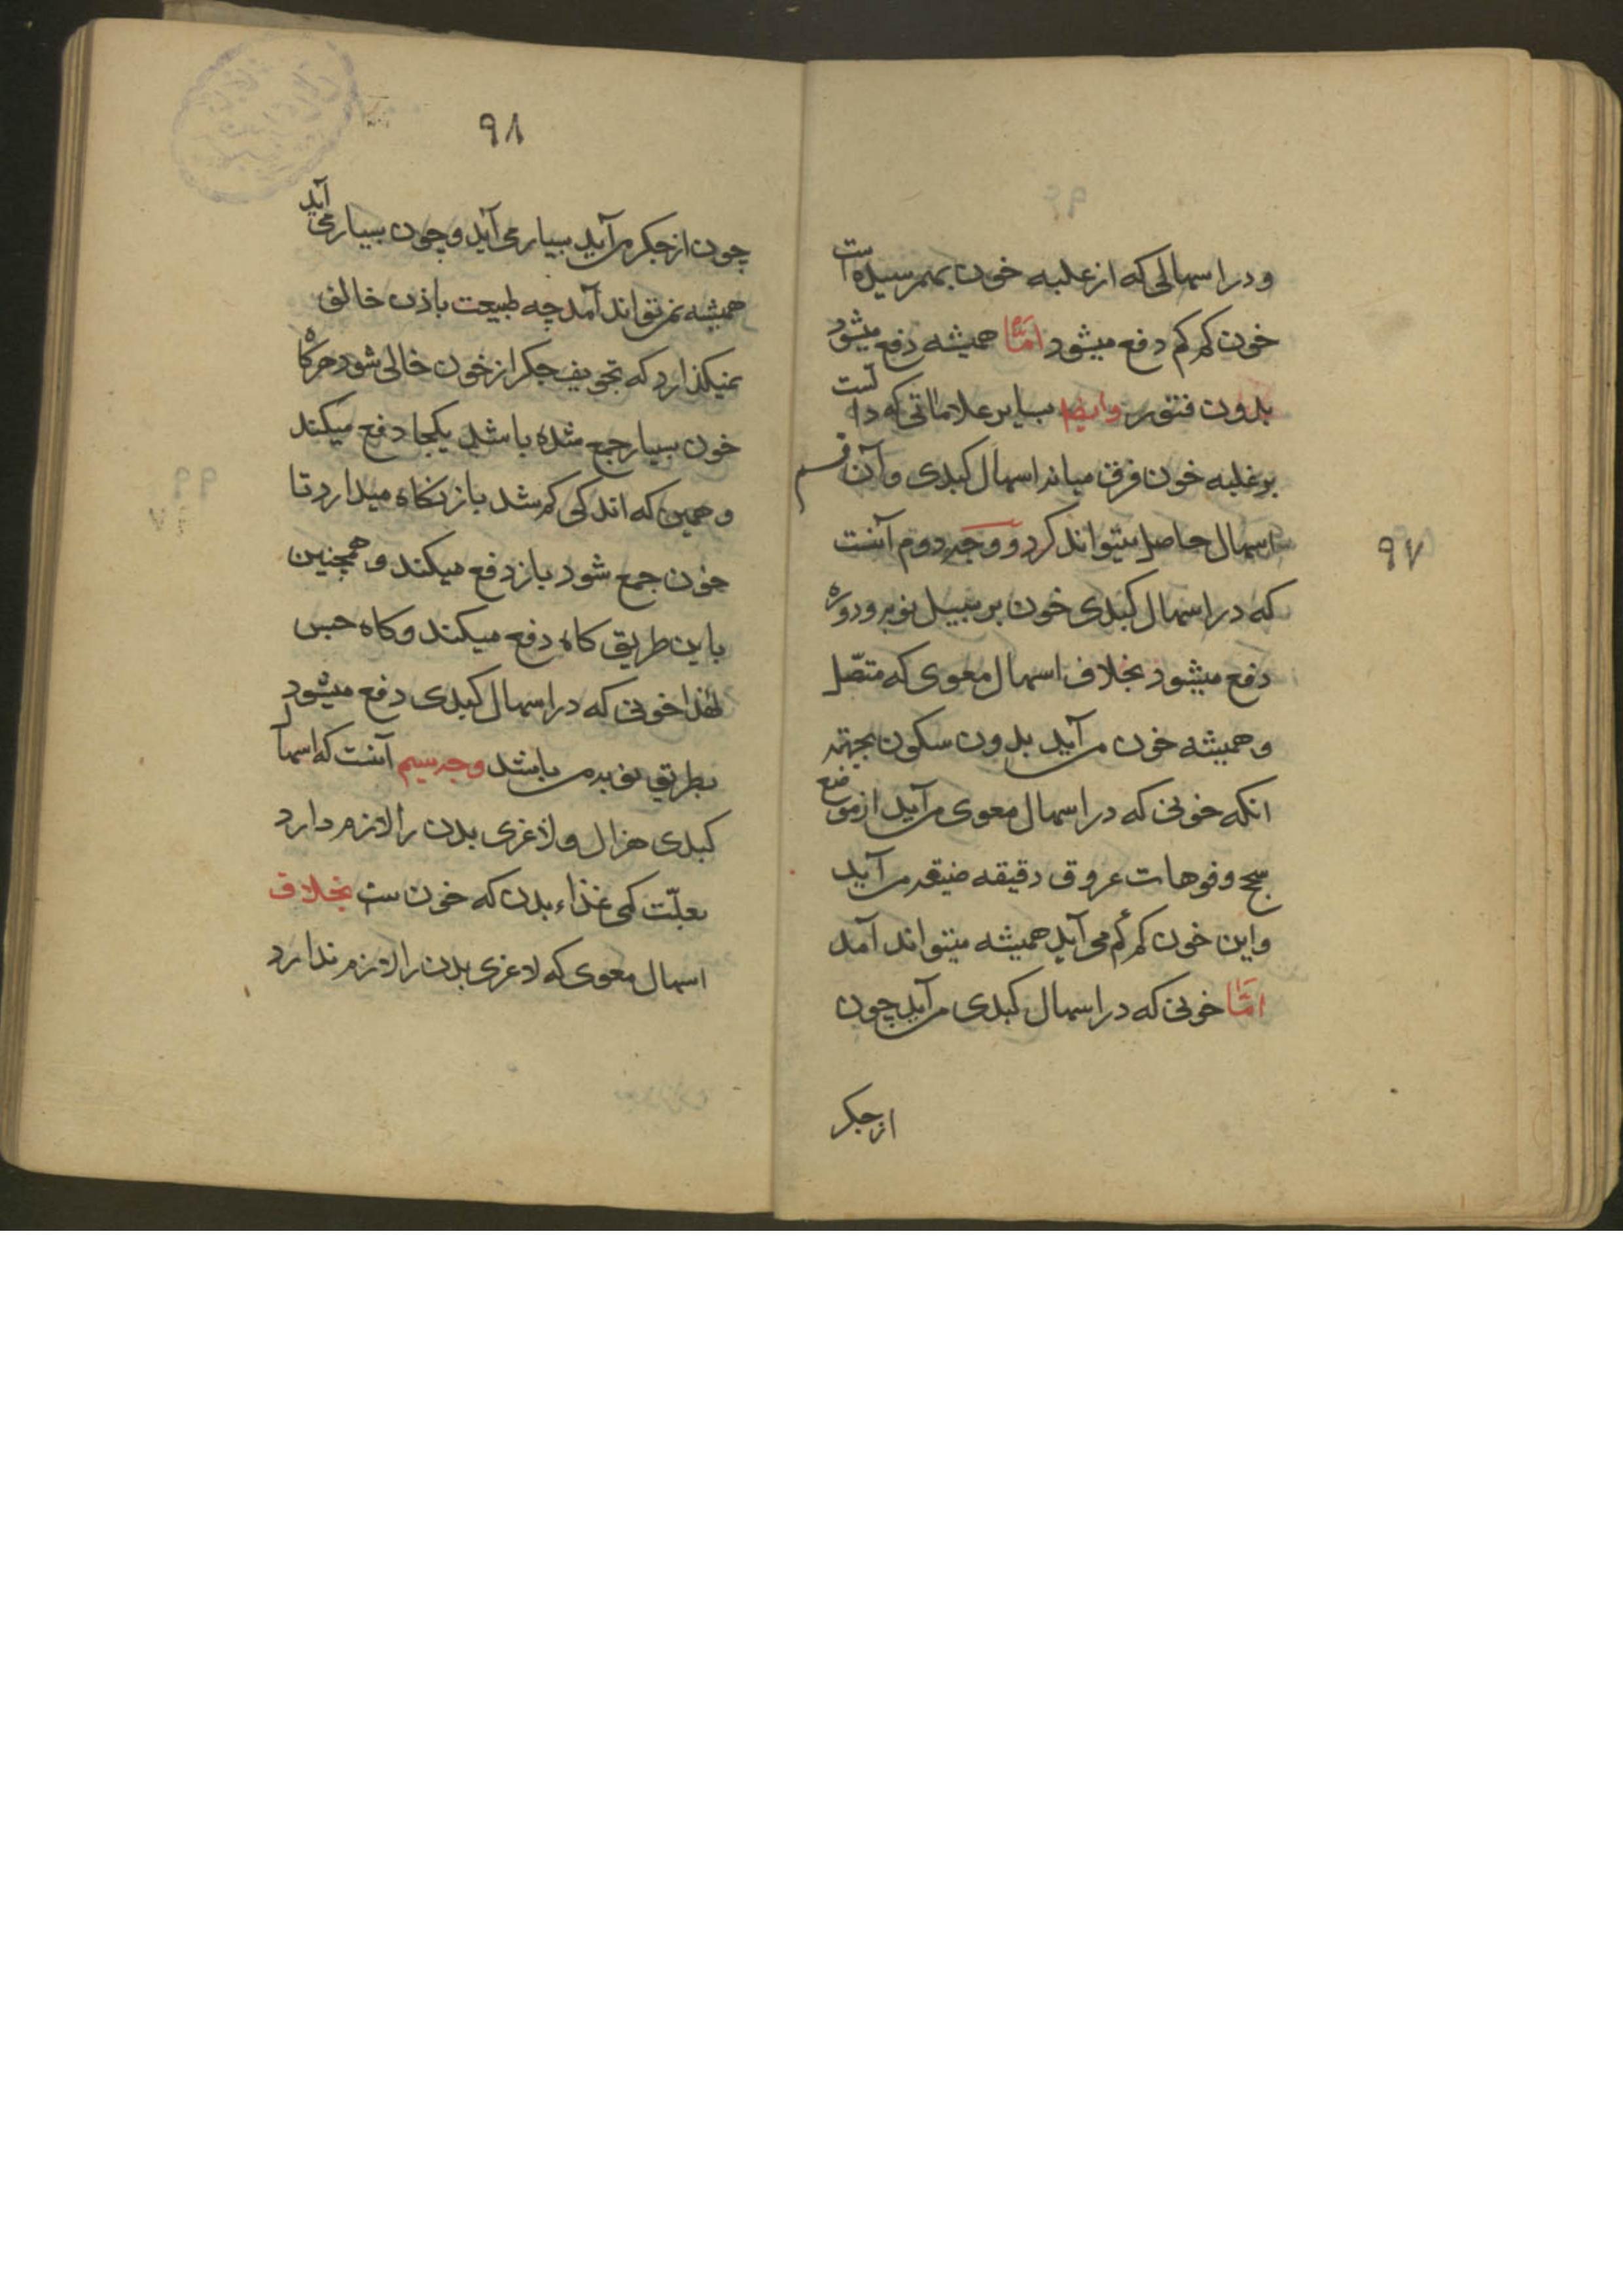 ۹۷
و در اسهالی که از غلبه خون بهمرسیده است
خون کم کم دفع میشود امّا همیشه دفع میشود
بدون فتور وایضا بسایر علاماتی که دا لست
بر غلبه خون فرق میانه اسهال کبدی و آن قسم
اسهال حاصل میتواند کرد و وجه دوم آنست
که در اسهال کبدی خون بر سبیل نوبه و دوره
دفع میشود بخلاف اسهال معوی که متصّل
و همیشه خون می آید بدون سکون بجهته
انکه خونی که در اسهال معوی می آید از موضع
سحج و فوهات عروق دقیقه ضیقه می آید
و این خون کم کم می آید همیشه میتواند آمد
امّا خونی که در اسهال کبدی می آید چون
از جکر
۹۸
چون از جکر می آید بسیار می آید و چون بسیار می آید
همیشه نمی تواند آمد چه طبیعت باذن خالق
نمیکذارد که تجویف جکر از خون خالی شود هرکاه
خون بسیار جمع شده باشد یکجا دفع میکند
و همین که اندکی کم شد باز نکاه میدارد تا
خون جمع شود باز دفع میکند و همچنین
باین طریق کاه دفع میکند و کاه حبس
لهذا خونی که در اسهال کبدی دفع میشود
بطریق نوبه می باشد وجه سیم آنست که اسهال
کبدی هزال و لاغری بدن را لازم دارد
بعلّت کمی غذاء بدن که خون ست بخلاف
اسهال معوی که لاغری بدن را لازم ندارد